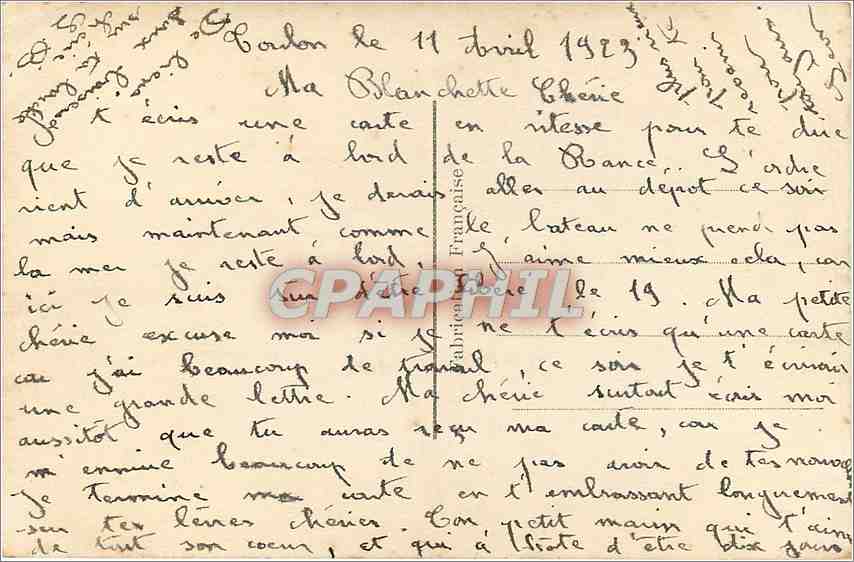 Toulon le 11 Avril 1923
Ma Blanchette Chérie
Je t'écris une carte en vitesse pour te dire
que je reste à bord de la Rance.. L'ordre
vient d'arriver, je devais aller au dépot ce soir
mais maintenant comme le bateau ne prend pas
la mer je reste à bord, J'aime mieux cela, car
ici je suis sur d'être libéré le 19. Ma petite
chérie excuse moi si je ne t'écris qu'une carte
car j'ai beaucoup de travail, ce soir je t'écrirai
une grande lettre. Ma chérie surtout écris moi
aussitôt que tu auras reçu ma carte, car je
m'ennuie beaucoup de ne pas avoir de tes nouvelles
Je termine ma carte en t'embrassant longuement
sur tes lèvres chéries. Ton petit marin qui t'aime
de tout son coeur, et qui à hâte d'être dix jours
Fabrication Française
CPAPHIL